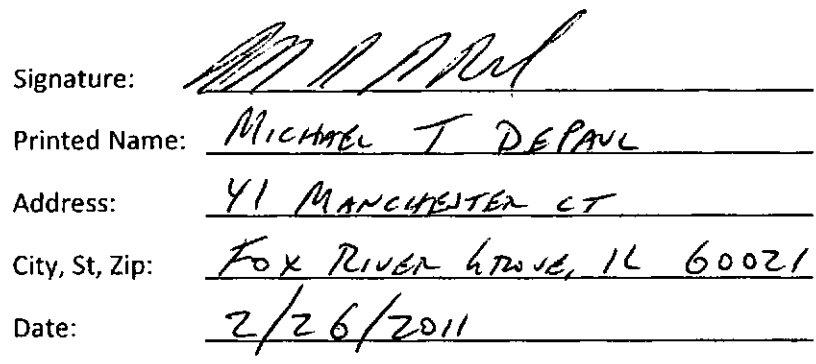 Signature:
Printed Name: MICHAEL T DEPAUL
Address: 41 MANCHESTER CT
City, St, Zip: FOX RIVER GROVE, IL 60021
Date: 2/26/2011